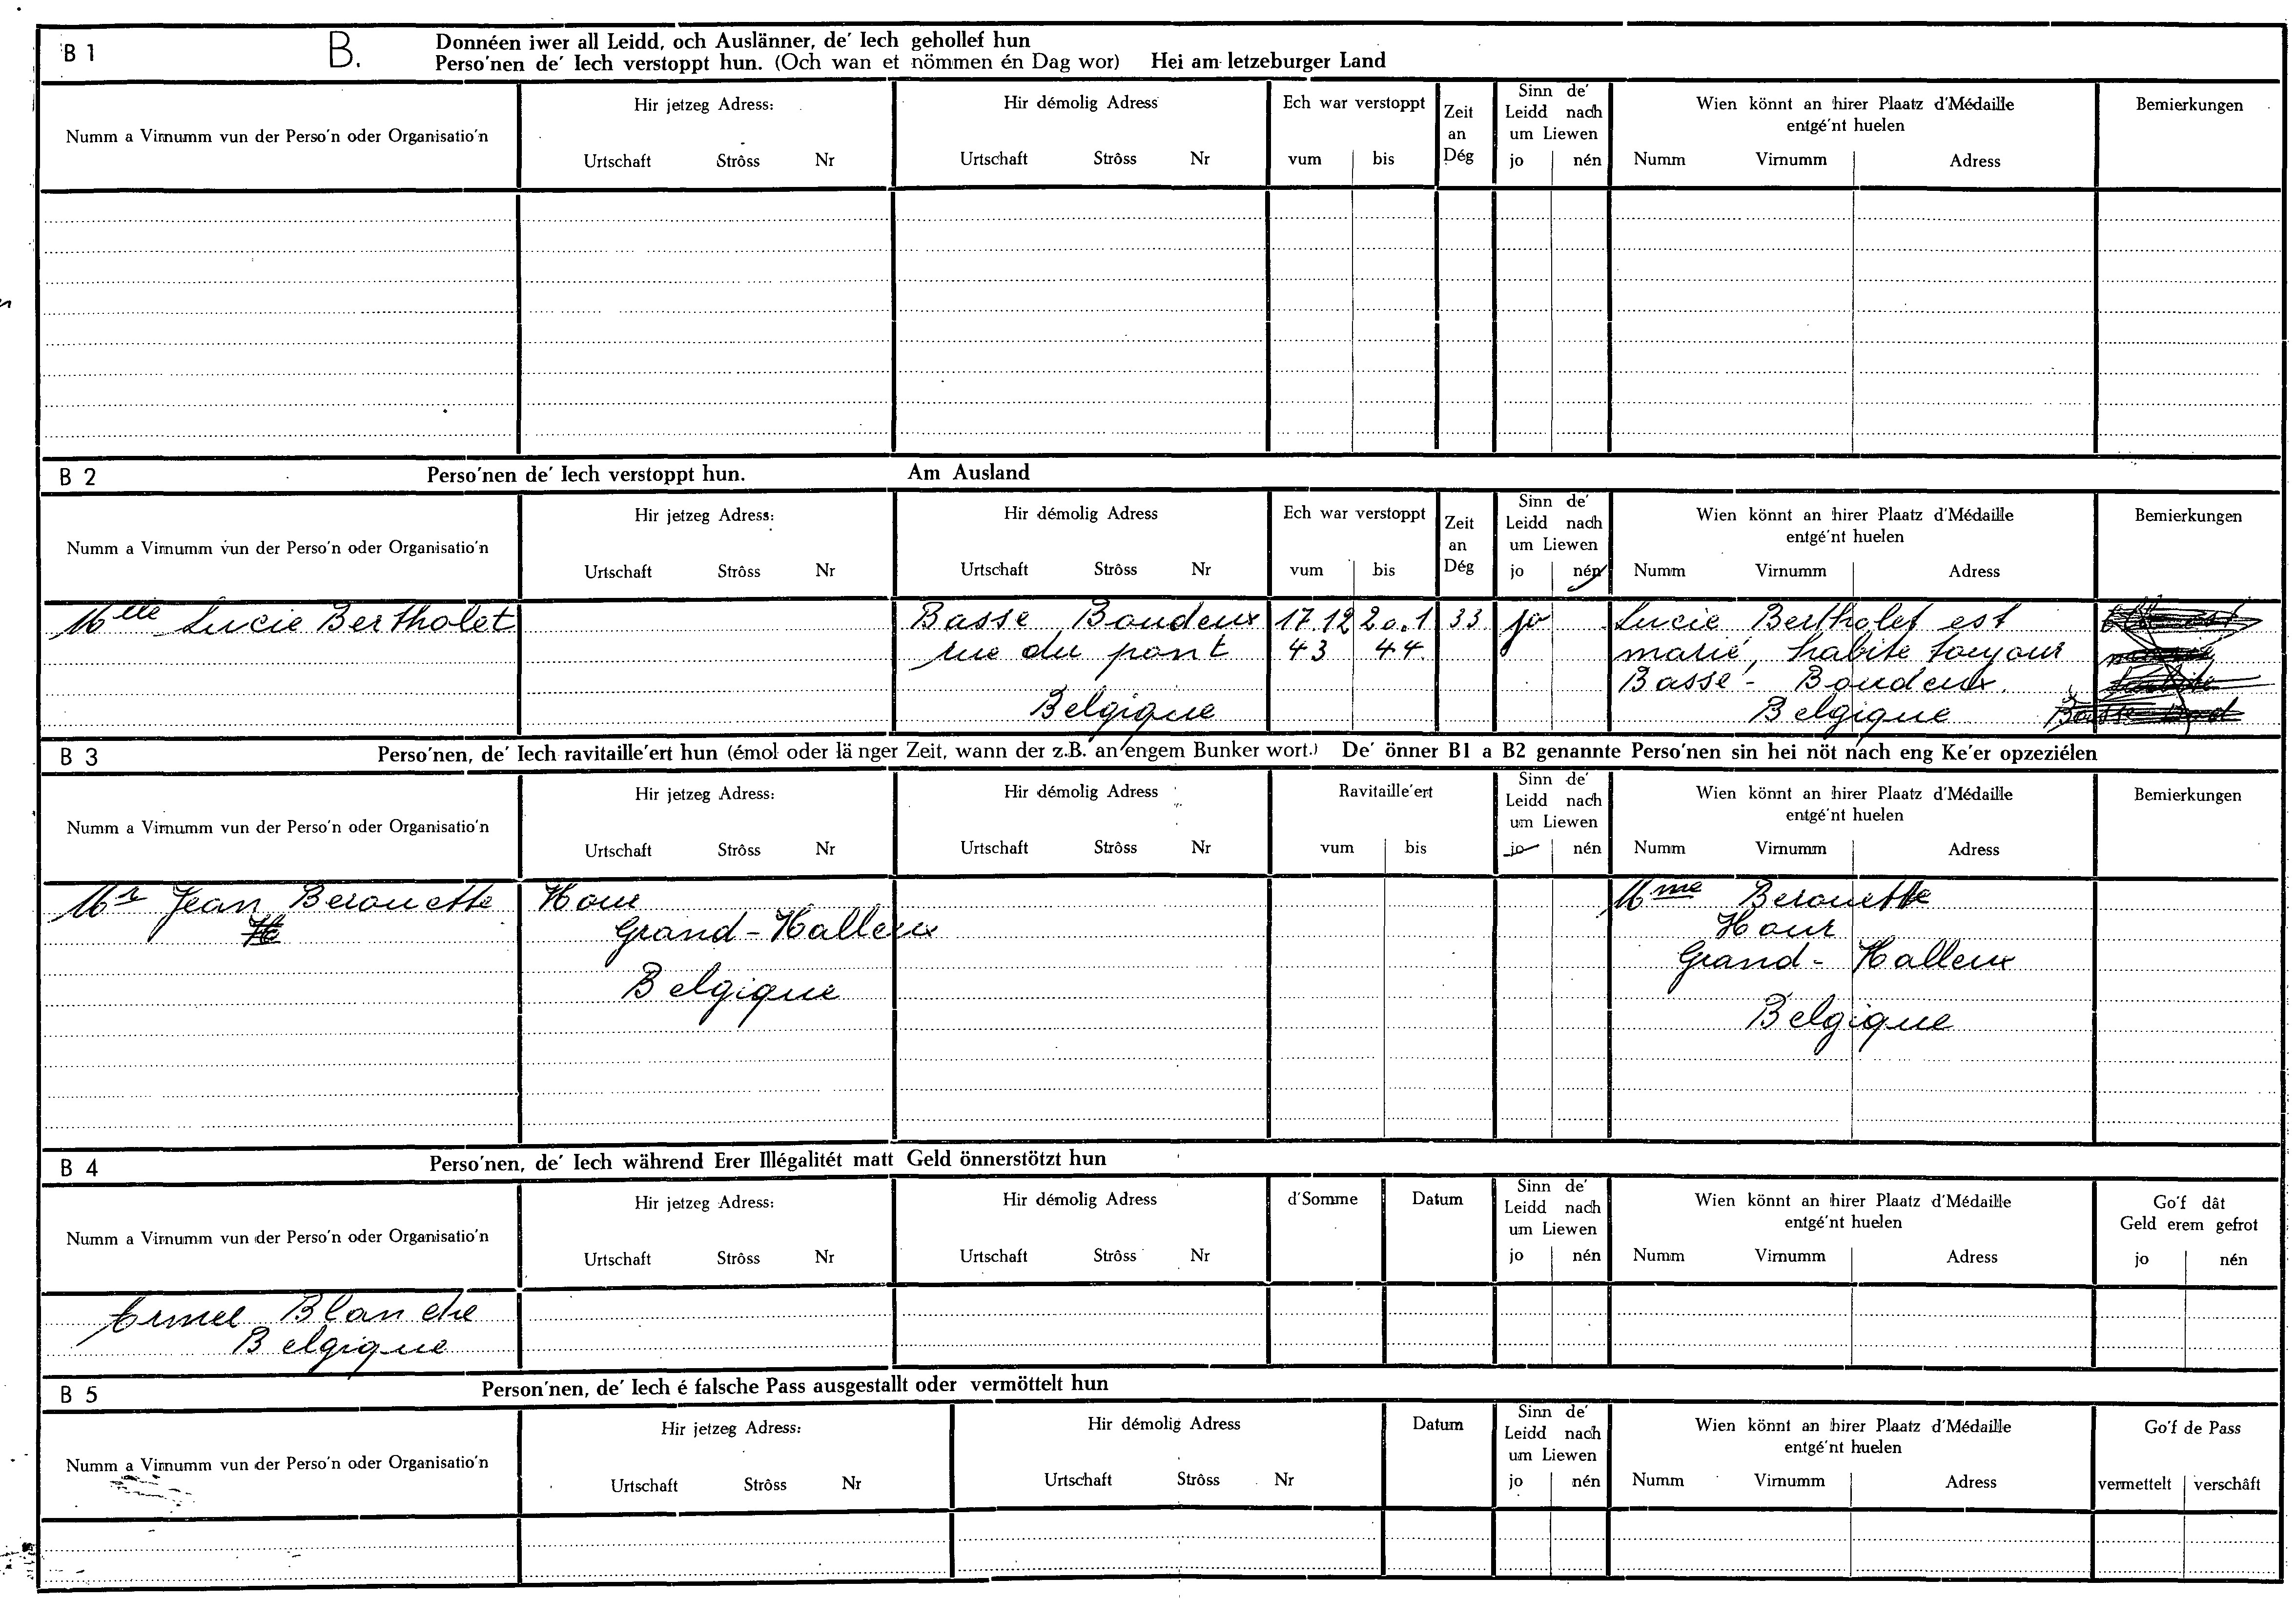 B 1 B. Donnéen iwer all Leidd, och Auslänner, de' Iech gehollef hun
Perso'nen de' Iech verstoppt hun. (Och wan et nömmen én Dag wor) Hei am letzeburger Land
Numm a Virnumm vun der Perso'n oder Organisatio'n
Hir jetzeg Adress:
Urtschaft Strôss Nr
Hir démolig Adress
Urtschaft Strôss Nr
Ech war verstoppt
vum bis
Zeit
an
Dég
Sinn de'
Leidd nach
um Liewen
jo nén
Wien könnt an hirer Plaatz d'Médaille
entgé'nt huelen
Numm Virnumm Adress
Bemierkungen
B 2 Perso'nen de' Iech verstoppt hun. Am Ausland
Numm a Virnumm vun der Perso'n oder Organisatio'n
Hir jetzeg Adress:
Urtschaft Strôss Nr
Hir démolig Adress
Urtschaft Strôss Nr
Ech war verstoppt
vum bis
Zeit
an
Dég
Sinn de'
Leidd nach
um Liewen
jo nén
Wien könnt an hirer Plaatz d'Médaille
entgé'nt huelen
Numm Virnumm Adress
Bemierkungen
Mlle Lucie Bertholet Basse Boudeux 17.12 20.1 33 jo Lucie Bertholet est
rue du pont 43 44 marié, habite toujour
Basse - Boudeux.
Belgique Belgique
B 3 Perso'nen, de' Iech ravitaille'ert hun (émol oder länger Zeit, wann der z.B. an engem Bunker wort.) De' önner B1 a B2 genannte Perso'nen sin hei nöt nach eng Ke'er opzeziélen
Numm a Virnumm vun der Perso'n oder Organisatio'n
Hir jetzeg Adress:
Urtschaft Strôss Nr
Hir démolig Adress
Urtschaft Strôss Nr
Ravitaille'ert
vum bis
Sinn de'
Leidd nach
um Liewen
jo nén
Wien könnt an hirer Plaatz d'Médaille
entgé'nt huelen
Numm Virnumm Adress
Bemierkungen
Mr Jean Berouette Hour Mme Berouette
Grand-Halleux Hour
Grand- Halleux
Belgique
Belgique
B 4 Perso'nen, de' Iech während Erer Illégalitét matt Geld önnerstötzt hun
Numm a Virnumm vun der Perso'n oder Organisatio'n
Hir jetzeg Adress:
Urtschaft Strôss Nr
Hir démolig Adress
Urtschaft Strôss Nr
d'Somme
Datum
Sinn de'
Leidd nach
um Liewen
jo nén
Wien könnt an hirer Plaatz d'Médaille
entgé'nt huelen
Numm Virnumm Adress
Go'f dât
Geld erem gefrot
jo nén
Armee Blanche
Belgique
B 5 Person'nen, de' Iech é falsche Pass ausgestallt oder vermöttelt hun
Numm a Virnumm vun der Perso'n oder Organisatio'n
Hir jetzeg Adress:
Urtschaft Strôss Nr
Hir démolig Adress
Urtschaft Strôss Nr
Datum
Sinn de'
Leidd nach
um Liewen
jo nén
Wien könnt an hirer Plaatz d'Médaille
entgé'nt huelen
Numm Virnumm Adress
Go'f de Pass
vermettelt verschâft